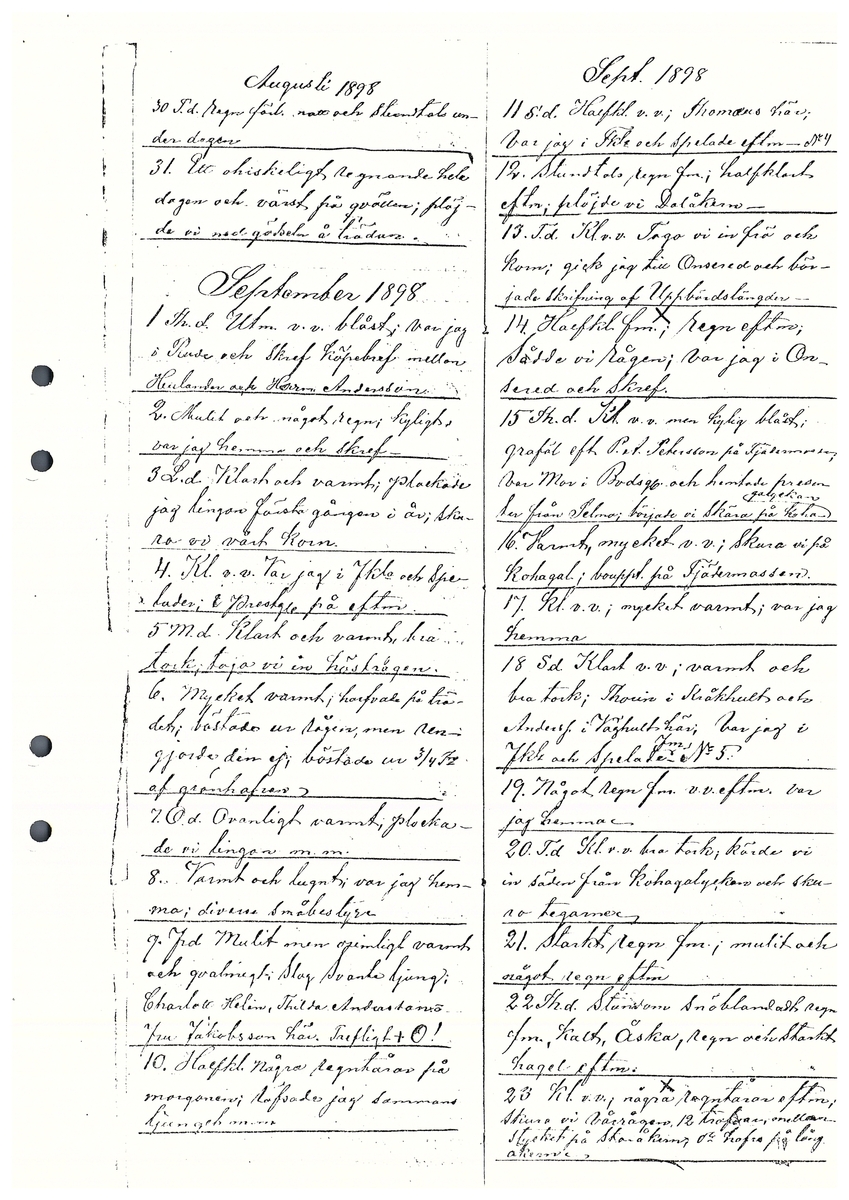 Augusti 1898
30 T.d. Regn förl. natt och stundtals un-
der dagen
31. Ett ohiskeligt regnande hela
dagen och värst på qvällen; plöj-
de vi ned gödseln å trädan.
September 1898
1 Th.d. Utm. v.v. blåst; var jag
i Rude och skref köpebref mellan
Herlander och Herm. Andersson.
2. Mulit och något regn; kyligt,
var jag hemma och skref
3 L.d. Klart och varmt; plockade
jag lingon första gången i år; sku-
ro vi vårt korn.
4. Kl. v.v. Var jag i Fkla och spe-
lade; på eftm.
5 M.d. Klart och varmt, bra
tork; toja vi in höströgen.
6. Mycket varmt; harfvade på trä-
det; böstade ur rågen, men ren-
gjorde den ej; böstade ur 3/4 Tr
af grönhafren
7. O.d. Ovanligt varmt, plocka-
de vi lingon m.m.
8. Varmt och lugnt; var jag hem-
ma; diverse småbestyr
9. Frd Mulit men ganska varmt
och qvalmigt; slog Svante ljung;
Charlott Helin, Thilda
fru Jakobsson här. Trefligt + O!
10. Halfkl. Några regntårar på
morgonen; räfsade jag sammans
ljung m.m.
Sept. 1898
11 S.d. Halfkl. v.v.; Thomæus här;
Var jag i Fkla och spelade eftm - No 4
12. Stundtals regn fm.; halfklart
eftm; plöjde vi Dalåkern
13. T.d. Kl. v.v. Togo vi in frö och
korn; gick jag till Onsered och bör-
jade skrifning af Uppbördslängder
14. Halfkl. fm.; regn eftm;
sådde vi rågen; var jag i On-
sered och skref.
15 Th.d. Kl. v.v. men kylig blåst;
graföl eft P. Petersson på Tjädermossen,
Var Mor i Bodsg. och hemtade presen-
ter från Selma; började vi skära på Koha-
galyckan
16. Varmt, mycket v.v.; skura vi på
Kohagal; boupt. på Tjädermossen.
17. Kl. v.v.; mycket varmt; var jag
hemma
18 Sd Klart v.v; varmt och
bra tork; Thorin i Kråkhult och
Anders. i Väghult här; Var jag i
Fkla och spelade fm. No 5.
19. Något regn fm. v.v. eftm. var
jag hemma
20. T.d Kl. v.v. bra tork; körde vi
in säden från Kohagalyckan och sku-
ro tegarne
21. Starkt regn fm.; mulit och
något regn eftm
22 Th.d. Stundom snöblandadt regn
fm., Kalt, Åska, regn och starkt
hagel eftm.
23 Kl. v.v; några regntårar eftm;
skura vi vårrågen, 12 trafvar, mellan-
stycket på Storåkern, o. hafre på lång
åkern